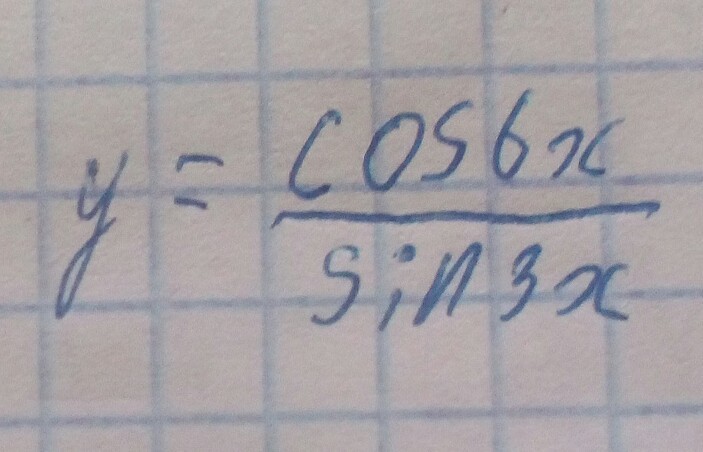 y = cos6x
sin3x